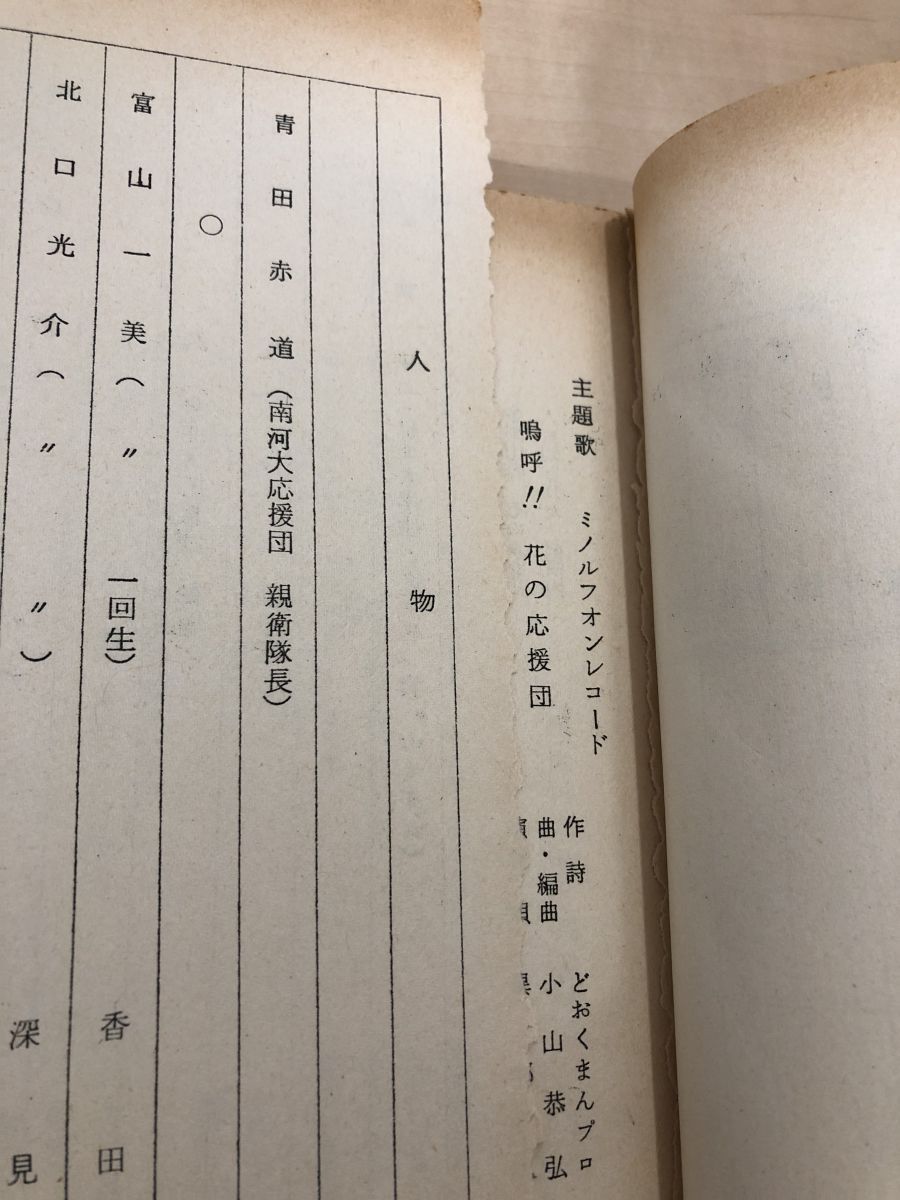 主題歌 ミノルフオンレコード
嗚呼!! 花の応援団
作詩 どおくまんプロ
曲・編曲 小山恭弘
人物
青田赤道(南河大応援団 親衛隊長)
○
富山一美(〃 一回生) 香田
北口光介(〃 〃) 深見